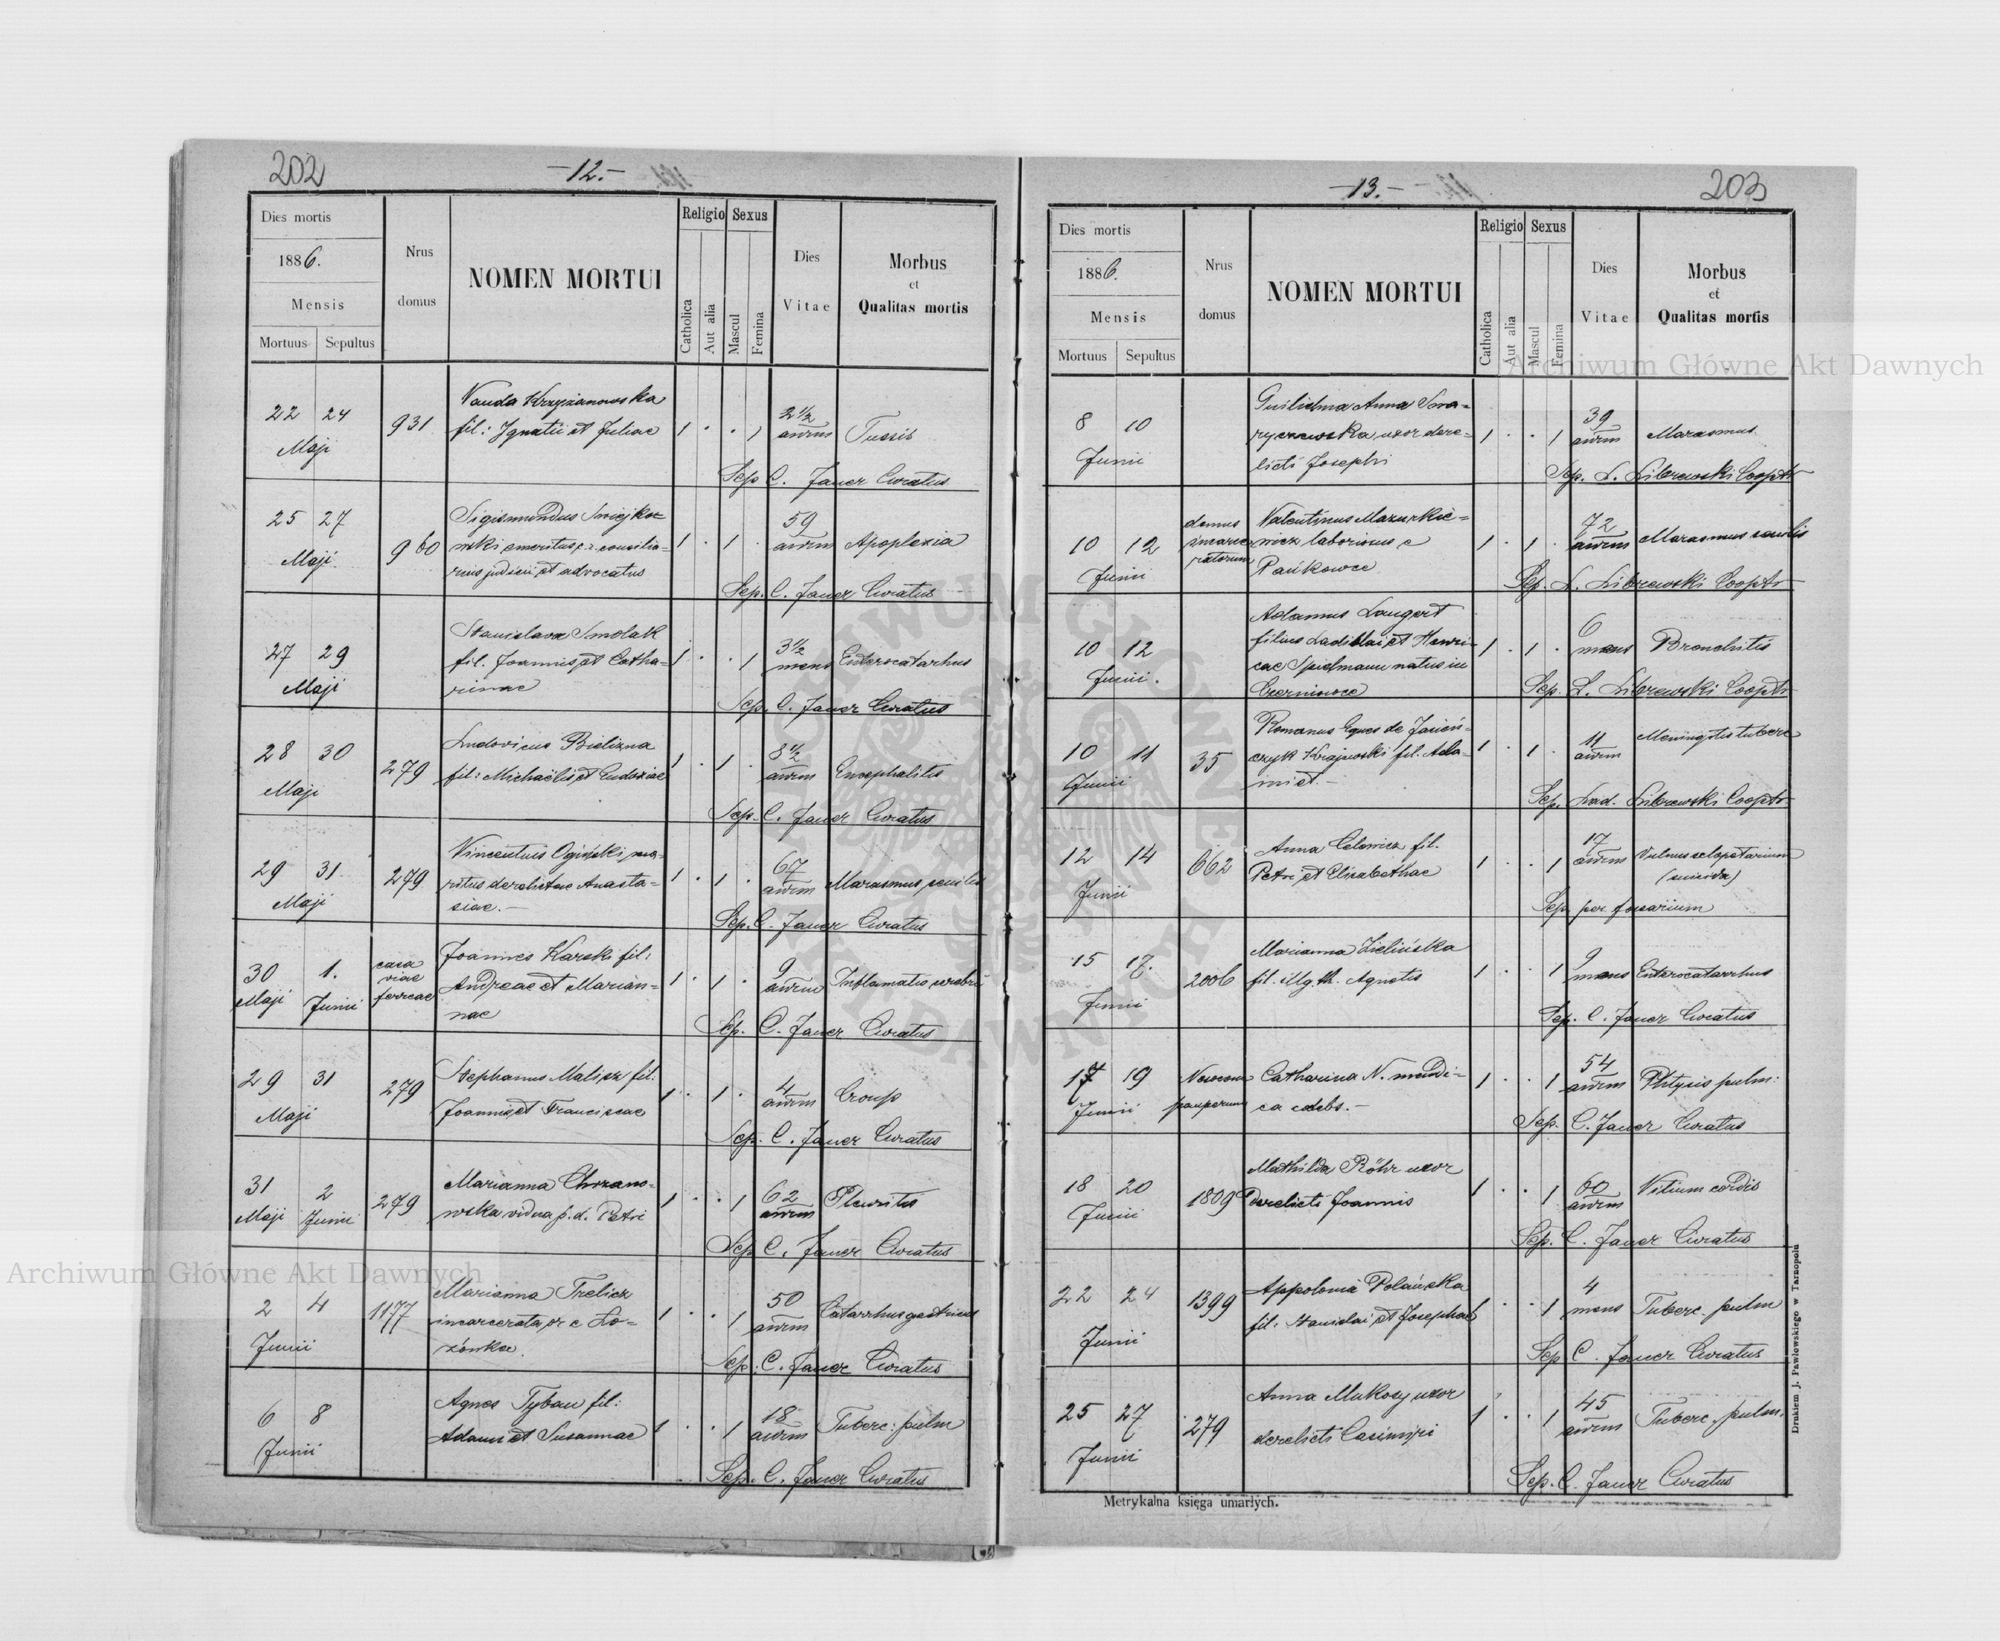 202
-12.-
Dies mortis
1886.
Mensis
Mortuus Sepultus
Nrus
domus
NOMEN MORTUI
Religio
Catholica
Aut alia
Sexus
Mascul
Femina
Dies
Vitae
Morbus
et
Qualitas mortis
22 24
Maji
931
Vanda Krzyżanowska
fil: Ignatii et Juliae
1 . . 1
2 1/2
annrm
Tussis
Sep. C. Jauer Curatus
25 27
Maji
960
Sigismundus
emeritus consilia-
rius judicii et advocatus
1 . 1 .
59
annrm
Apoplexia
Sep. C. Jauer Curatus
27 29
Maji
Stanislava Smolak
fil. Joannis et Catha-
rinae
1 . . 1
3 1/2
mens
Enterocatarhus
Sep. C. Jauer Curatus
28 30
Maji
279
Ludovicus Bielizna
fil: Michaëlis et Eudoxiae
1 . 1 .
8 1/2
annrm
Encephalitis
Sep. C. Jauer Curatus
29 31.
Maji
279
Vincentius Ogiński ma-
ritus derelictae Anasta-
siae.-
1 . 1 .
67
annrm
Marasmus senilis
Sep. C. Jauer Curatus
30 1.
Maji Junii
casa
viae
ferreae
Joannes Karski fil:
Andreae et Marian-
nae
1 . 1 .
9
annrm
Inflamatio cerebri
Sep. C. Jauer Curatus
29 31
Maji
279
Stephanus Malisz fil:
Joannis et Franciscae
1 . 1 .
4
annrm
Croup
Sep. C. Jauer Curatus
31 2
Maji Junii
279
Marianna Chrzano-
wska vidua p.d. Petri
1 . . 1
62
annrm
Pleuritis
Sep. C. Jauer Curatus
2 4
Junii
1177
Marianna Trelicz
incarcerata or e Ło-
zówka.
1 . . 1
50
annrm
Catarrhus gastricus
Sep. C. Jauer Curatus
6 8
Junii
Agnes Tyban fil:
Adami et Susannae
1 . . 1
18
annrm
Tuberc: pulm
Sep. C. Jauer Curatus
-13.-
203
Dies mortis
1886.
Mensis
Mortuus Sepultus
Nrus
domus
NOMEN MORTUI
Religio
Catholica
Aut alia
Sexus
Mascul
Femina
Dies
Vitae
Morbus
et
Qualitas mortis
8 10
Junii
Guilielma Anna
uxor dere-
licti Josephi
1 . . 1
39
annrm
Marasmus
Sep. L. Librewski Cooptr
10 12
Junii
domus
incarce
ratorum
Valentinus Mazurkie-
wicz laboriosus e
Pańkowce
1 . 1 .
72
annrm
Marasmus senilis
Sep. L. Librewski Cooptr
10 12
Junii.
Adamus Laugert
filius Ladislai et Henri-
cae Spielmann natus in
Czerniowce
1 . 1 .
6
mens
Bronchitis
Sep. L. Librewski Cooptr
10 11
Junii
35
Romanus Eques de Jasień-
czyk Krajewski fil. Ada-
mi et.-
1 . 1 .
11
annrm
Meningitis tuberc
Sep. Lad. Librewski Cooptr
12 14
Junii
662
Anna Celewicz fil.
Petri et Elisabethae
1 . . 1
17
annrm
Vulnus sclopetarium
(suicida)
Sep. per fossarium
15 17.
Junii
2006
Marianna Zielińska
fil. illg. th. Agnetis
1 . . 1
9
mens
Enterocatarrhus
Sep. C. Jauer Curatus
17 19
Junii
Nosocom
pauperum
Catharina N. mendi-
ca caelebs.-
1 . . 1
54
annrm
Phtysis pulm:
Sep. C. Jauer Curatus
18 20
Junii
1809
Mathilda Röhr uxor
derelicti Joannis
1 . . 1
60
annrm
Vitium cordis
Sep. C. Jauer Curatus
22 24
Junii
1399
Appolonia Polańska
fil: Stanislai et Josephae
1 . . 1
4
mens
Tuberc. pulm
Sep C. Jauer Curatus
25 27
Junii
279
Anna Mukosy uxor
derelicti Casimiri
1 . . 1
45
annrm
Tuberc. pulm.
Sep. C. Jauer Curatus
Metrykalna księga umarłych.
Drukiem J. Pawłowskiego w Tarnopolu
Archiwum Główne Akt Dawnych
Archiwum Główne Akt Dawnych
ARCHIWUM GŁÓWNE AKT DAWNYCH